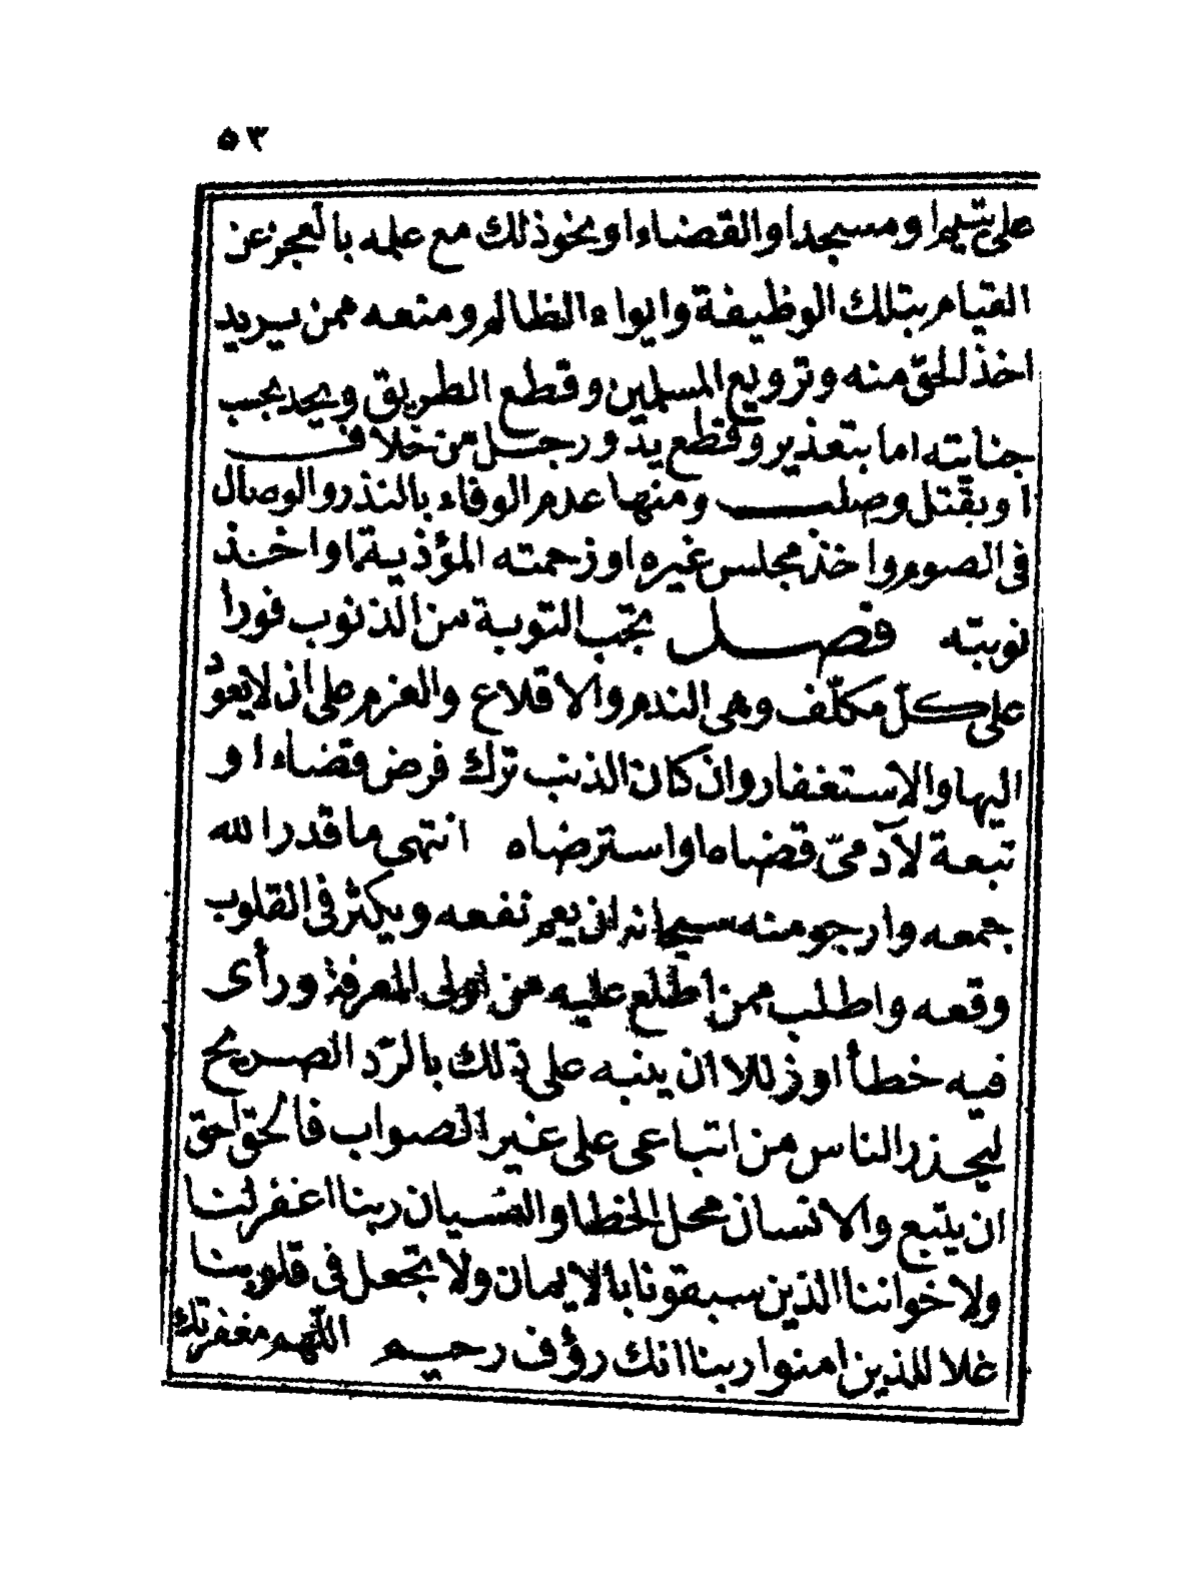 ٥٣
على يتيم او مسجد او القضاء او نحو ذلك مع علمه بالعجز عن
القيام بتلك الوظيفة وايواء الظالم ومنعه ممن يريد
اخذ الحق منه وترويع المسلمين وقطع الطريق ويحد بحسب
جنايته اما بتعذير وقطع يد ورجل من خلاف
او بقتل وصلب ومنها عدم الوفاء بالنذر والوصال
فى الصوم واخذ مجلس غيره او زحمته المؤذية او اخذ
نوبته فصل تجب التوبة من الذنوب فورا
على كل مكلّف وهى الندم والاقلاع والعزم على ان لا يعود
اليها والاستغفار وان كان الذنب ترك فرض قضاء او
تبعة لآدمىّ قضاه او استرضاه انتهى ما قدر الله
جمعه وارجو منه سبحانه ان يعم نفعه ويكثر فى القلوب
وقعه واطلب ممن اطلع عليه من اولى المعرفة ورأى
فيه خطأ او زللا ان ينبه على ذلك بالرّد الصريح
ليحذر الناس من اتباعى على غير الصواب فالحق احق
ان يتبع والانسان محل الخطا والنسيان ربنا اغفر لنا
ولاخواننا الذين سبقونا بالايمان ولا تجعل فى قلوبنا
غلا للذين امنوا ربنا انك رؤف رحيم اللّهم مغفرتك